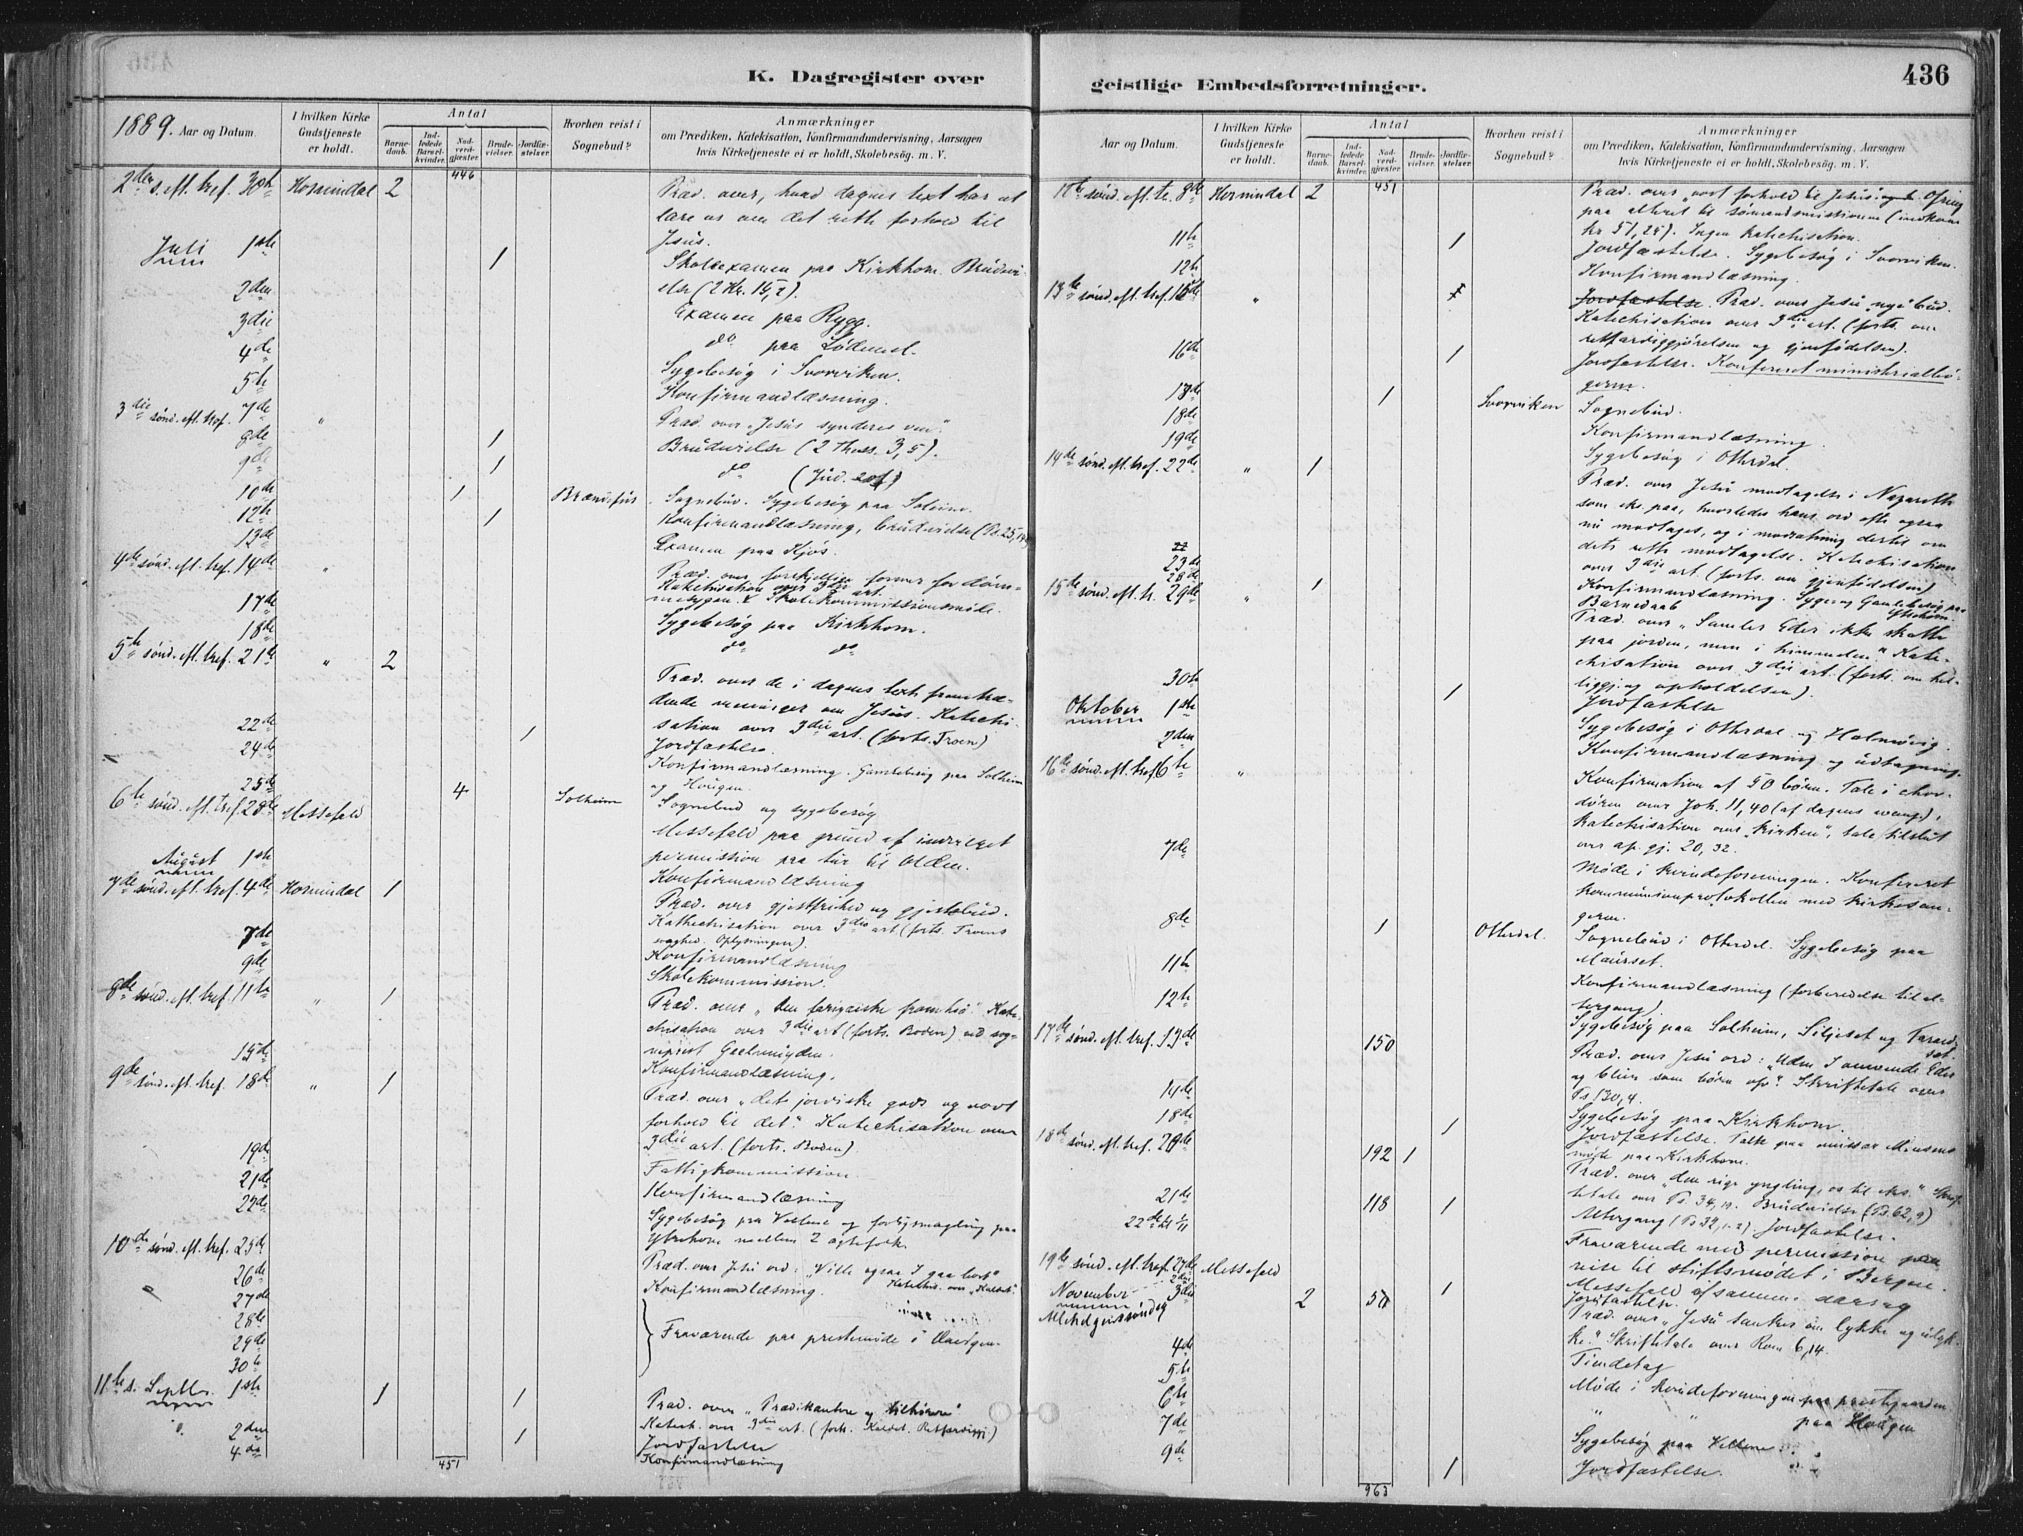 K. Dagregister over
1889. Aar og Datum.
I hvilken Kirke Gudstjeneste er holdt.
Antal
Barnedaab.
Indledede Barselkvinder.
Nadverdgjester.
Brudevielser.
Jordfæstelser.
Hvorhen reist i Sognebud?
Anmærkninger
om Prædiken, Katekisation, Konfirmandundervisning, Aarsagen
hvis Kirketjeneste ei er holdt, Skolebesøg. m. V.
2den s. eft. tref. 30te Hornindal 2 446 Præd. over, hvad dagens text har at
lære os om det rette forhold til
Jesus.
Juli 1ste 1 Skoleexamen paa Kirkhorn. Brudevi-
else (2 Kr. 15,2).
2den Examen paa Rygg.
3die do paa Lødemel.
4de Sygebesøg i Svorviken.
5te Konfirmandlæsning.
3die sønd. eft. tref. 7de " Præd. over „Jesus synderes ven".
8de 1 Brudevielse (2 Thess. 3,5).
9de 1 do (Jud.
10de 1 Sognebud. Sygebesøg paa
12te 1 Konfirmandlæsning, brudevielse (Ps. 25,14)
13de Examen paa Kjøs.
4de sønd. eft. tref. 14de " Præd. over forskjellige former for døm-
Katekisation over 3die art.
mesygen. Skolekommissionsmøde.
17de Sygebesøg paa Kirkhorn.
18de do do
5te sønd. eft. tref. 21de " 2 Præd. over de i dagens text fremtræ-
dende meninger om Jesus. Katechi-
sation over 3die art. (forts. Troen)
22de 1 Jordfæstelse.
24de Konfirmandlæsning. Gamlebesøg paa Solheim
og Hougen.
25de 4 Solheim Sognebud og sygebesøg
6te sønd. eft. tref. 28de Messefald Messefald paa grund af indvilget
permission paa tur til Olden.
August 1ste Konfirmandlæsning
7de sønd. eft. tref. 4de Hornindal 1 Præd. over gjestfrihed og gjestebud.
Kathechisation over 3die art (forts. Troens
svaghed. Oplysningen).
7de Konfirmandlæsning
9de Skolekommission.
8de sønd. eft. tref. 11te " 1 Præd. over „den farisæiske fromhed" Kate-
chisation over 3die art (forts. Boden) ved sog-
neprest
15de Konfirmandlæsning.
9de sønd. eft. tref. 18de " 1 Præd. over „det jordiske gods og vort
forhold til det." Katechisation over
3die art. (forts. Boden).
19de Fattigkommission.
21de Konfirmandlæsning
22de Sygebesøg paa og forligsmægling paa
Ytrehorn mellem 2 ægtefolk.
10de sønd. eft. tref. 25de Præd. over Jesu ord: „Ville ogsaa I gaa bort"
26de Konfirmandlæsning.
27de
28de
29de Fraværende paa prestemøde i
30te
11te s. Septbr. 1ste 1 1 Præd. over „Prædikanten og tilhørere"
Katech. over 3die art. (forts.
2den 1 Jordfæstelse
4de Konfirmandlæsning
451
geistlige Embedsforretninger.
436
Aar og Datum.
I hvilken Kirke Gudstjeneste er holdt.
Antal
Barnedaab.
Indledede Barselkvinder.
Nadverdgjester.
Brudevielser.
Jordfæstelser.
Hvorhen reist i Sognebud?
Anmærkninger
om Prædiken, Katekisation, Konfirmandundervisning, Aarsagen
hvis Kirketjeneste ei er holdt, Skolebesøg. m. V.
sønd. eft. tr. 8de Hornindal 2 451 Præd. over „vort forhold til Jesus. Ofring
paa alteret til sømandsmissionen (indkom
kr 51,25). Ingen katechisation.
11te 1 Jordfæstelse. Sygebesøg i Svorviken.
12te Konfirmandlæsning.
13de sønd. eft. tref. 15de " Jordfæstelse. Præd. over Jesu nye bud.
Katechisation over 3die art. (forts. om
retfærdiggjørelsen og gjenfødelsen).
16de 1 Jordfæstelse. Konfereret ministerialbø-
gerne.
1 Svorviken Sognebud.
18de Konfirmandlæsning.
19de Sygebesøg i Otterdal.
14de sønd. eft. tref. 22de " 1 Præd. over Jesu modtagelse i Nazareth
som eks. paa, hvorledes hans ord ofte ogsaa
nu modtages, og i modsætning dertil om
dets rette modtagelse. Katechisation
over 3die art. (forts. om gjenfødelsen)
23de Konfirmandlæsning. Syge og Gamlebesøg paa
Ytrehorn
28de Barnedaab
15de sønd. eft. tr. 29de " 1 Præd. over „Samler Eder ikke skatte
paa jorden, men i himmelen." Kate-
chisation over 3die art. (forts. om hel-
liggj. og opholdelsen).
30te 1 Jordfæstelse
Oktober 1ste Sygebesøg i Otterdal og Holmøvig.
2den Konfirmandlæsning og udtagning.
16de sønd. eft. tref 6te " Konfirmation af 50 børn. Tale i chor-
døren over Joh. 11,40 (af dagens evang),
katechisation over „kirken", tale tilslut
over ap. gj. 20,32.
7de Møde i kvindeforeningen. Konfereret
kommunionprotokollen med kirkesan-
geren.
8de 1 Otterdal. Sognebud i Otterdal. Sygebesøg paa
Maurset.
11te Konfirmandlæsning (forberedelse til al-
tergang).
12te Sygebesøg paa Solheim, Siljeset og
17de sønd. eft. tref. 13de 150 Præd. over Jesu ord: „Uden I omvende Eder
og blive som børn osv." Skriftetale over
Ps 130,4.
Sygebesøg paa Kirkhorn.
18de 1 Jordfæstelse. Talt paa
møde paa Kirkhorn.
18de sønd. eft. tref. 20de 192 1 Præd. over „den rige yngling, os til eks." Skrif-
tetale over Ps. 34, Brudevielse (Ps. 62,9)
21de 118 1 Altergang (Ps 32,1-2). Jordfæstelse.
22de Fraværende med permission paa
reise til stiftsmødet i Bergen.
19de sønd. eft. tref. 27de Messefald Messefald af samme aarsag
2den 1 Jordfæstelse.
November 3die 2 Præd. over „Jesu tanker om lykke og ulyk-
Allehelgenssøndag ke." Skriftetale over Rom 6,14.
4de Tiendetag
5te Møde i kvindeforeningen paa prestegaarden
6te " " paa Hougen
7de Sygebesøg paa
9de 1 Jordfæstelse.
963